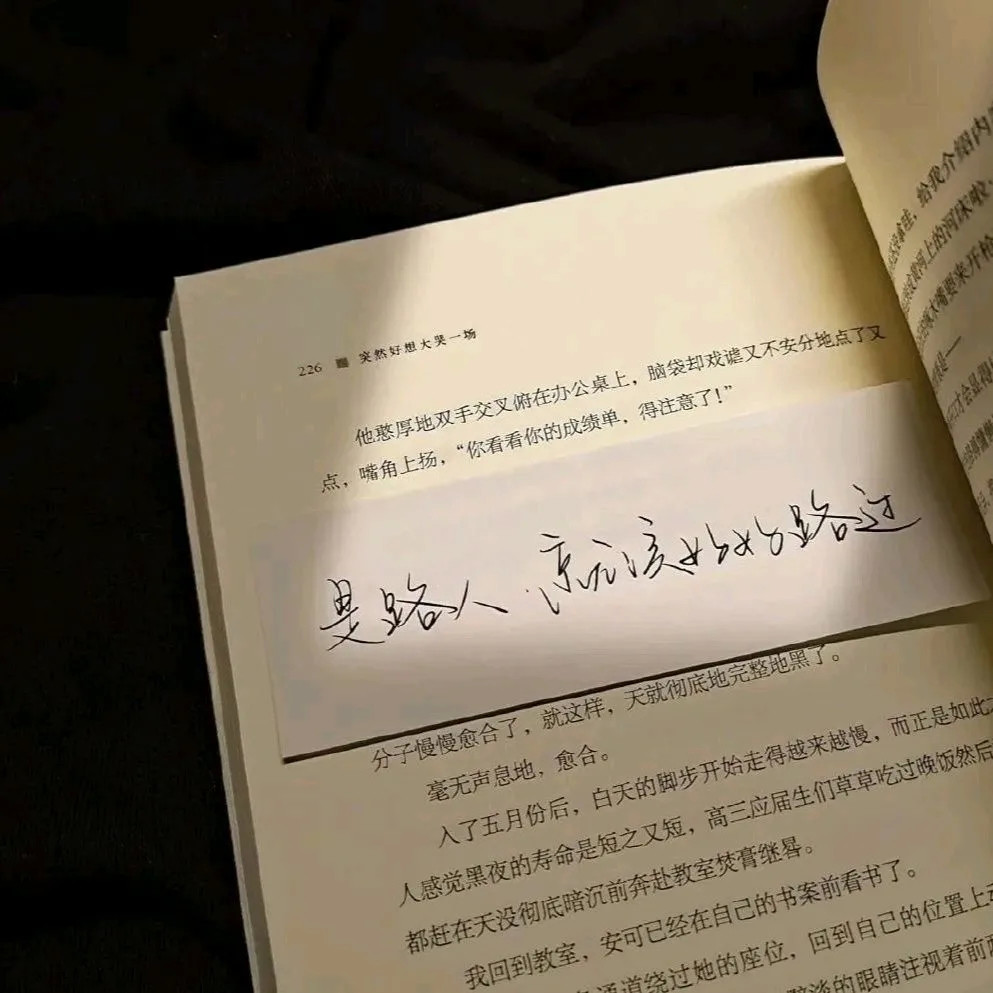 226 突然好想大哭一场
他憨厚地双手交叉俯在办公桌上，脑袋却戏谑又不安分地点了又
点，嘴角上扬，“你看看你的成绩单，得注意了！”
是路人 就应该好好路过
分子慢慢愈合了，就这样，天就彻底地完整地黑了。
毫无声息地，愈合。
入了五月份后，白天的脚步开始走得越来越慢，而正是如此
人感觉黑夜的寿命是短之又短，高三应届生们草草吃过晚饭然后
都赶在天没彻底暗沉前奔赴教室焚膏继晷。
我回到教室，安可已经在自己的书案前看书了。
通道绕过她的座位，回到自己的位置上
的眼睛注视着前
给我介绍内
河上的河床
大嘴要来开枪
是——
才会显得